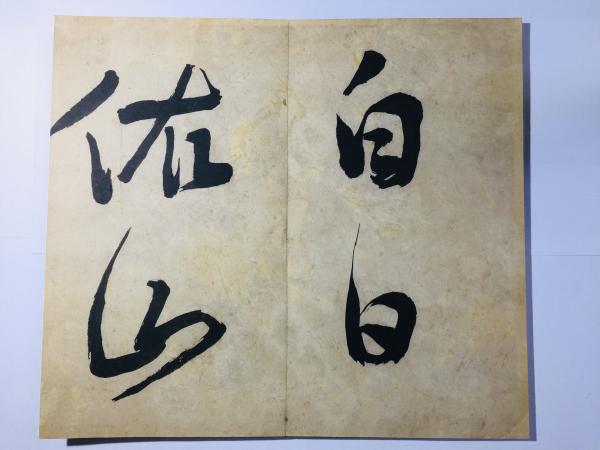 白日
依山